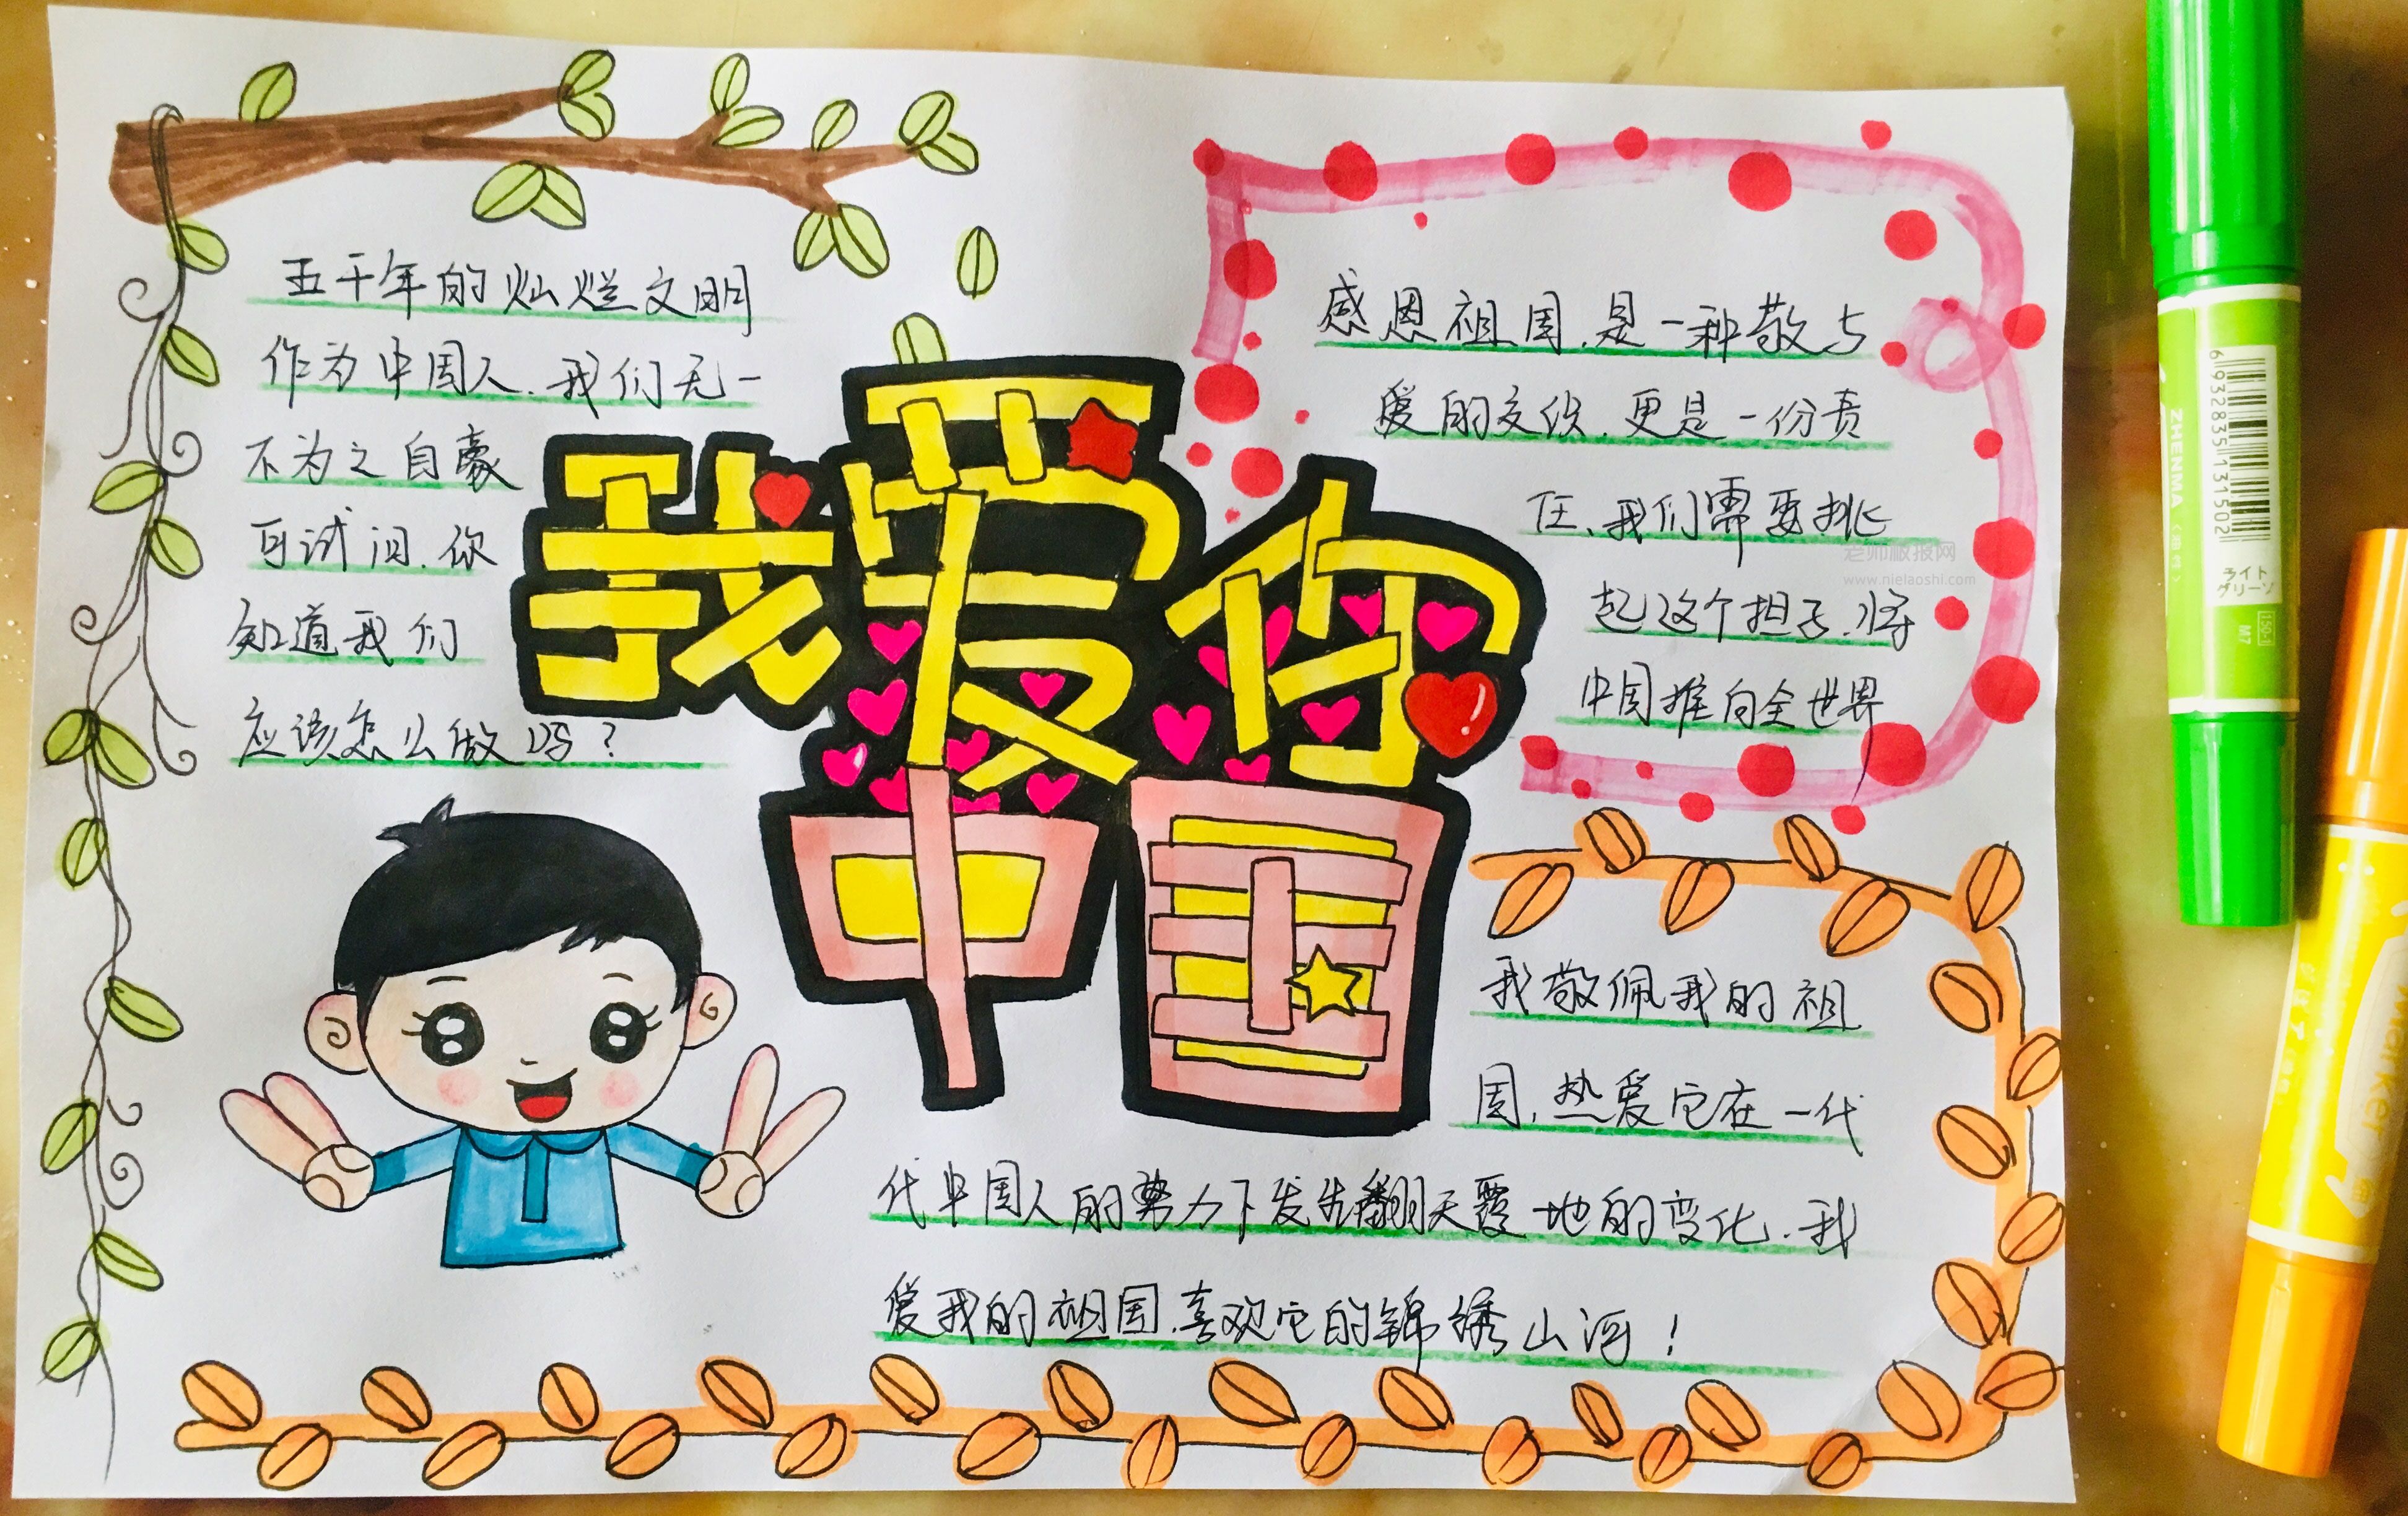 五千年的灿烂文明
作为中国人.我们无一
不为之自豪
可试问.你
知道我们
应该怎么做吗?
我爱你
中国
感恩祖国.是一种敬与
爱的交织.更是一份责
任.我们需要挑
起这个担子.将
中国推向全世界
老师板报网
www.nielaoshi.com
我敬佩我的祖
国.热爱它在一代
代中国人的努力下发生翻天覆地的变化.我
爱我的祖国.喜欢它的锦绣山河!
ZHENMA
6932835131502
ライト
グリーン
150-1
M7